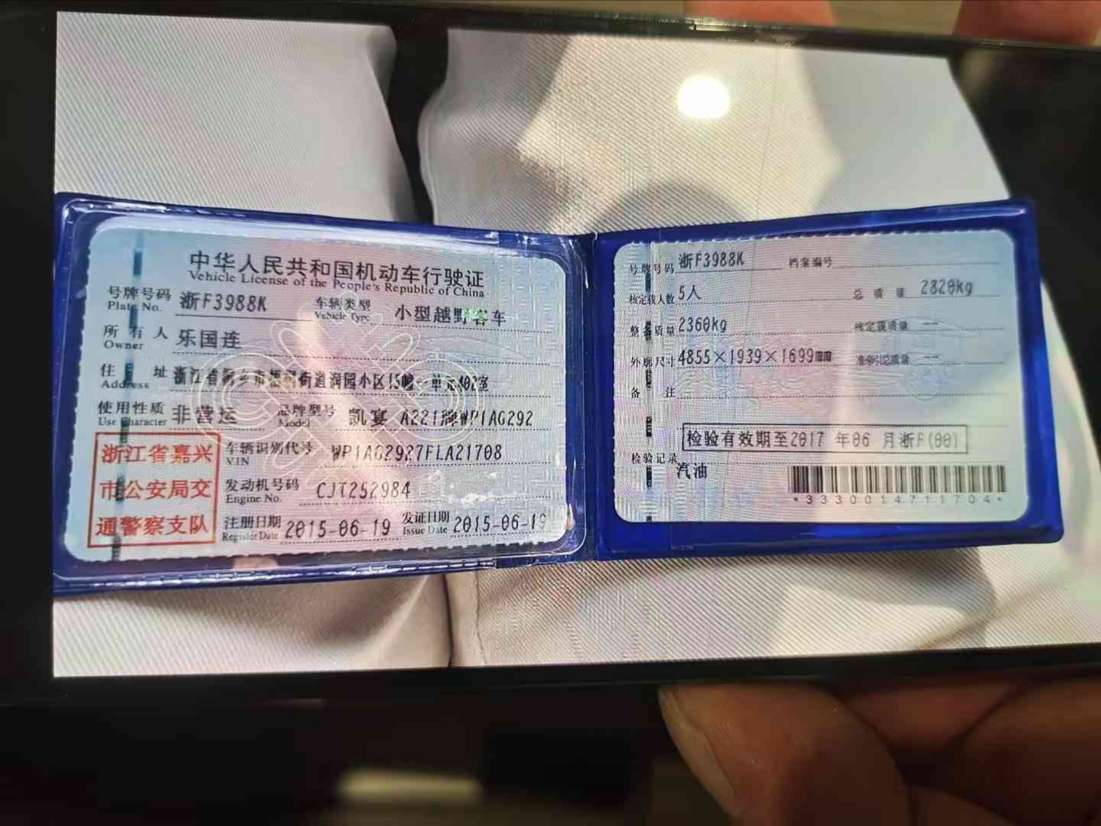 中华人民共和国机动车行驶证
Vehicle License of the People's Republic of China
号牌号码 浙F3988K 车辆类型 小型越野客车
Plate No. Vehicle Type
所有人 乐国连
Owner
住址 浙江省 市 街道润园小区15幢 单元402室
Address
使用性质 非营运 品牌型号 凯宴 A221牌WP1AG292
Use Character Model
浙江省嘉兴
市公安局交
通警察支队
车辆识别代号 WP1AG2927FLA21708
VIN
发动机号码 CJT252984
Engine No.
注册日期 2015-06-19 发证日期 2015-06-19
Register Date Issue Date
号牌号码 浙F3988K 档案编号
核定载人数 5人 总质量 2820kg
整备质量 2360kg 核定载质量 --
外廓尺寸 4855×1939×1699 准牵引总质量 --
备注
检验有效期至2017 年06 月浙F(00)
检验记录
汽油
*3330014711704*